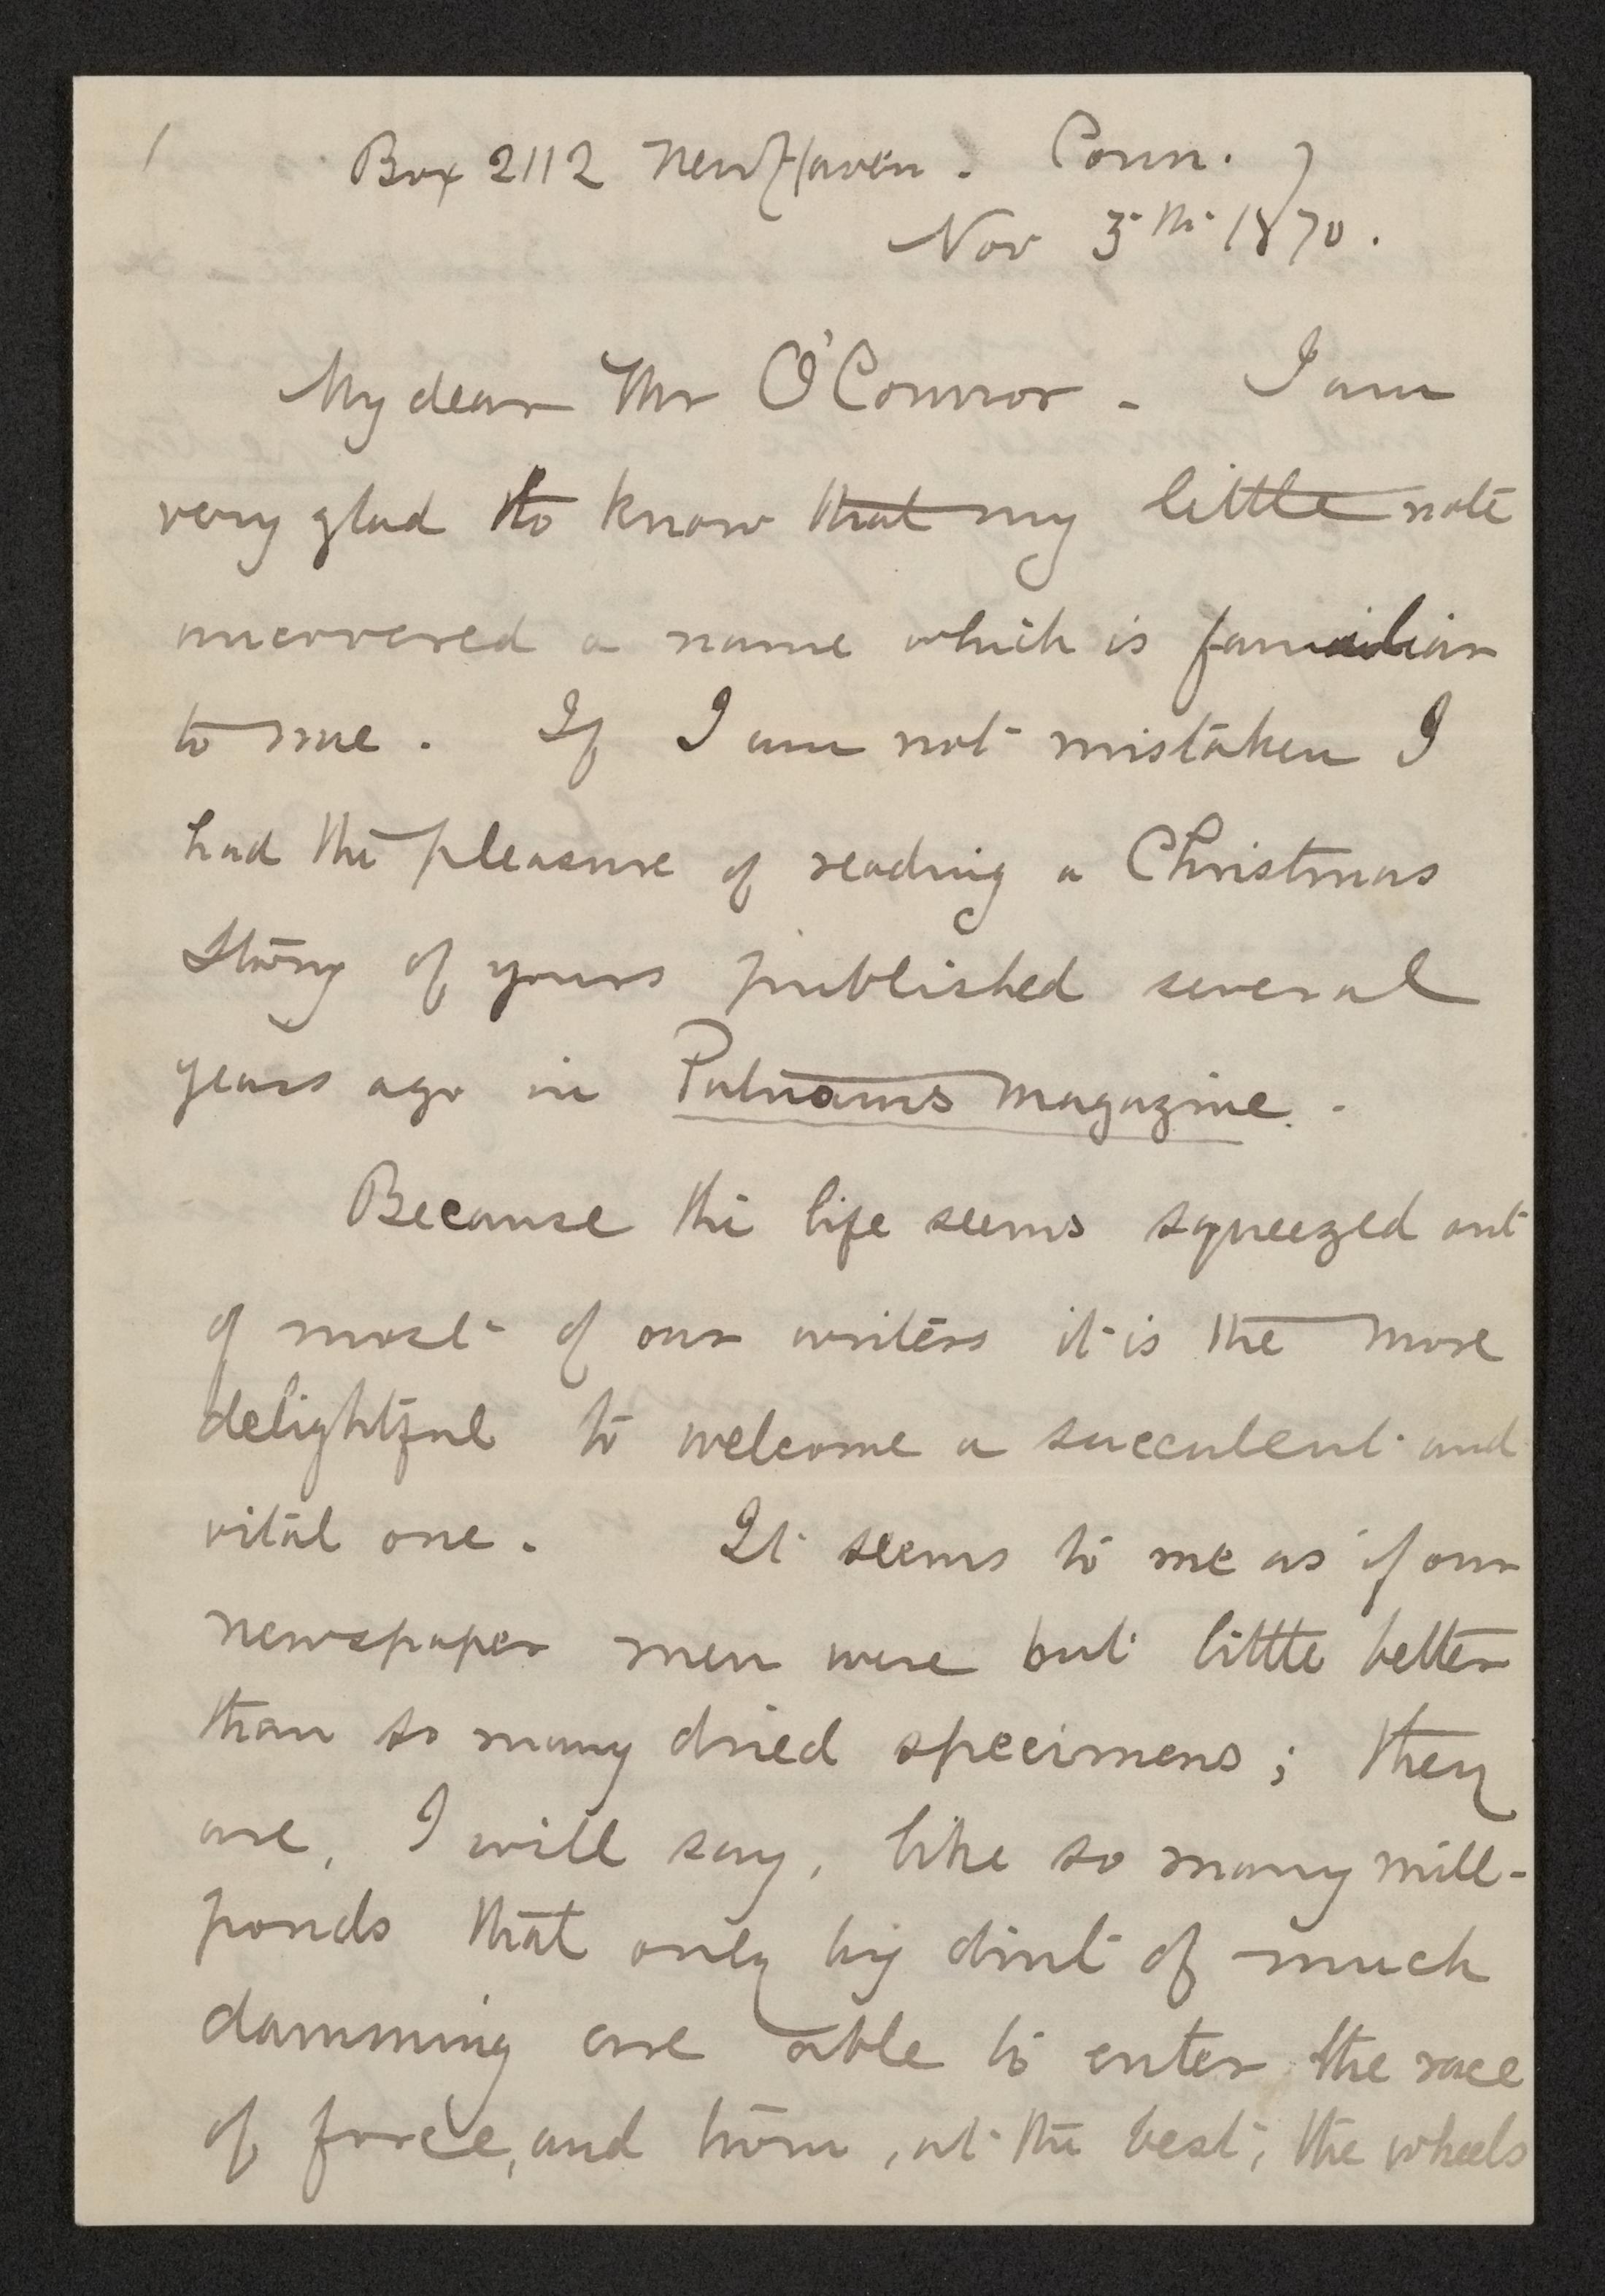 1
Box 2112 New Haven. Conn.
Nov 5th 1870.
My dear Mr O'Connor - I am
very glad to know that my little note
uncovered a name which is familiar
to me. If I am not mistaken I
had the pleasure of reading a Christmas
Story of yours published several
years ago in Putnams Magazine. -
Because the life seems squeezed out
of most of our writers it is the more
delightful to welcome a succulent and
vital one. It seems to me as if our
newspaper men were but little better
than so many dried specimens; they
are, I will say, like so many mill-
ponds that only by dint of much
damming are able to enter the race
of force, and turn, at the best, the wheels